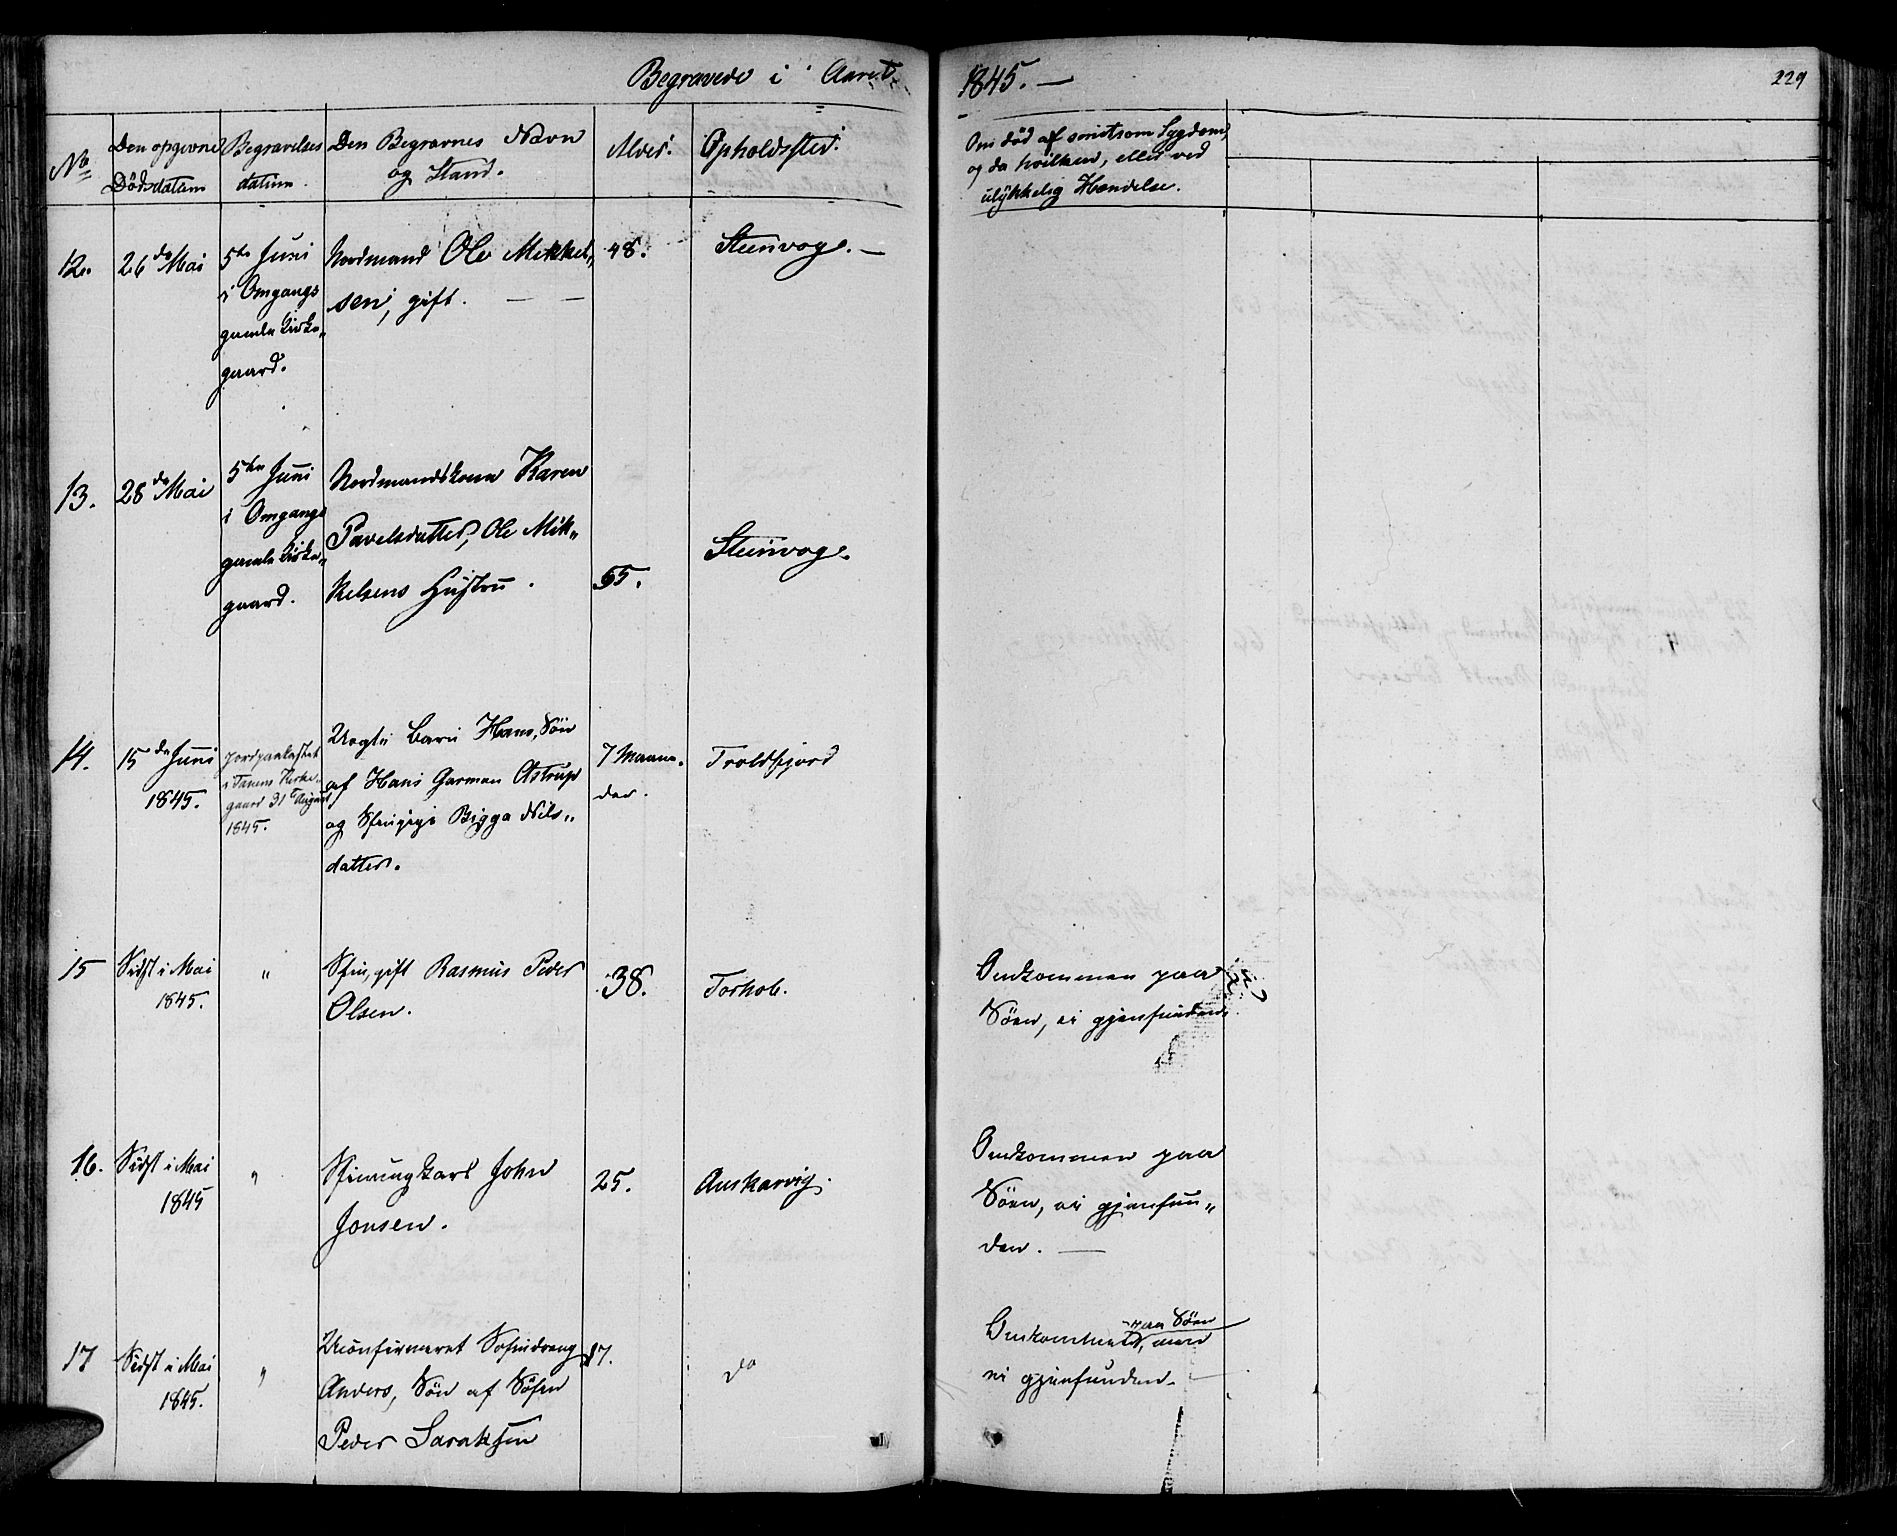 Begravede i Aaret 1845. —
229
No
Den opgivne
Dödsdatum
Begravelses
datum.
Den Begravnes Navn
og Stand.
Alder.
Opholdssted.
Om död af smitsom Sygdom,
og da hvilken, eller ved
ulykkelig Hændelse.
12.
26de Mai
5te Juni
i Omgangs
gamle Kirke„
gaard.
Nordmand Ole Mikkel„
sen, gift. — —
48.
Steinvog. —
13.
28de Mai
5te Juni
i Omgangs
gamle Kirke„
gaard.
Nordmandskone Karen
Pavelsdatter, Ole Mik„
kelsens Hustru.
55.
Steinvog.
14.
15de Juni
1845.
Jordpaakastet
i Tanens Kirke„
gaard 31te August
1845.
Uægte Barn Hans, Sön
af Hans Garman Astrup
og Bigga Nils„
datter.
7 Maane„
der.
Troldfjord
15
Sidst i Mai
1845.
„
gift Rasmus Peder
Olsen.
38.
Torhob.
Omkommen paa
Söen, ei gjenfunden.
16.
Sidst i Mai
1845
„
John
Jonsen.
25.
Omkommen paa
Söen, ei gjenfun„
den. —
17
Sidst i Mai
1845.
„
Uconfirmeret
Anders, Sön af
Peder
17.
do
paa Söen
Omkommen, men
ei gjenfunden. —